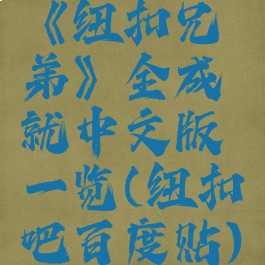 《纽扣兄
弟》全成
就中文版
一览(纽扣
吧百度贴)